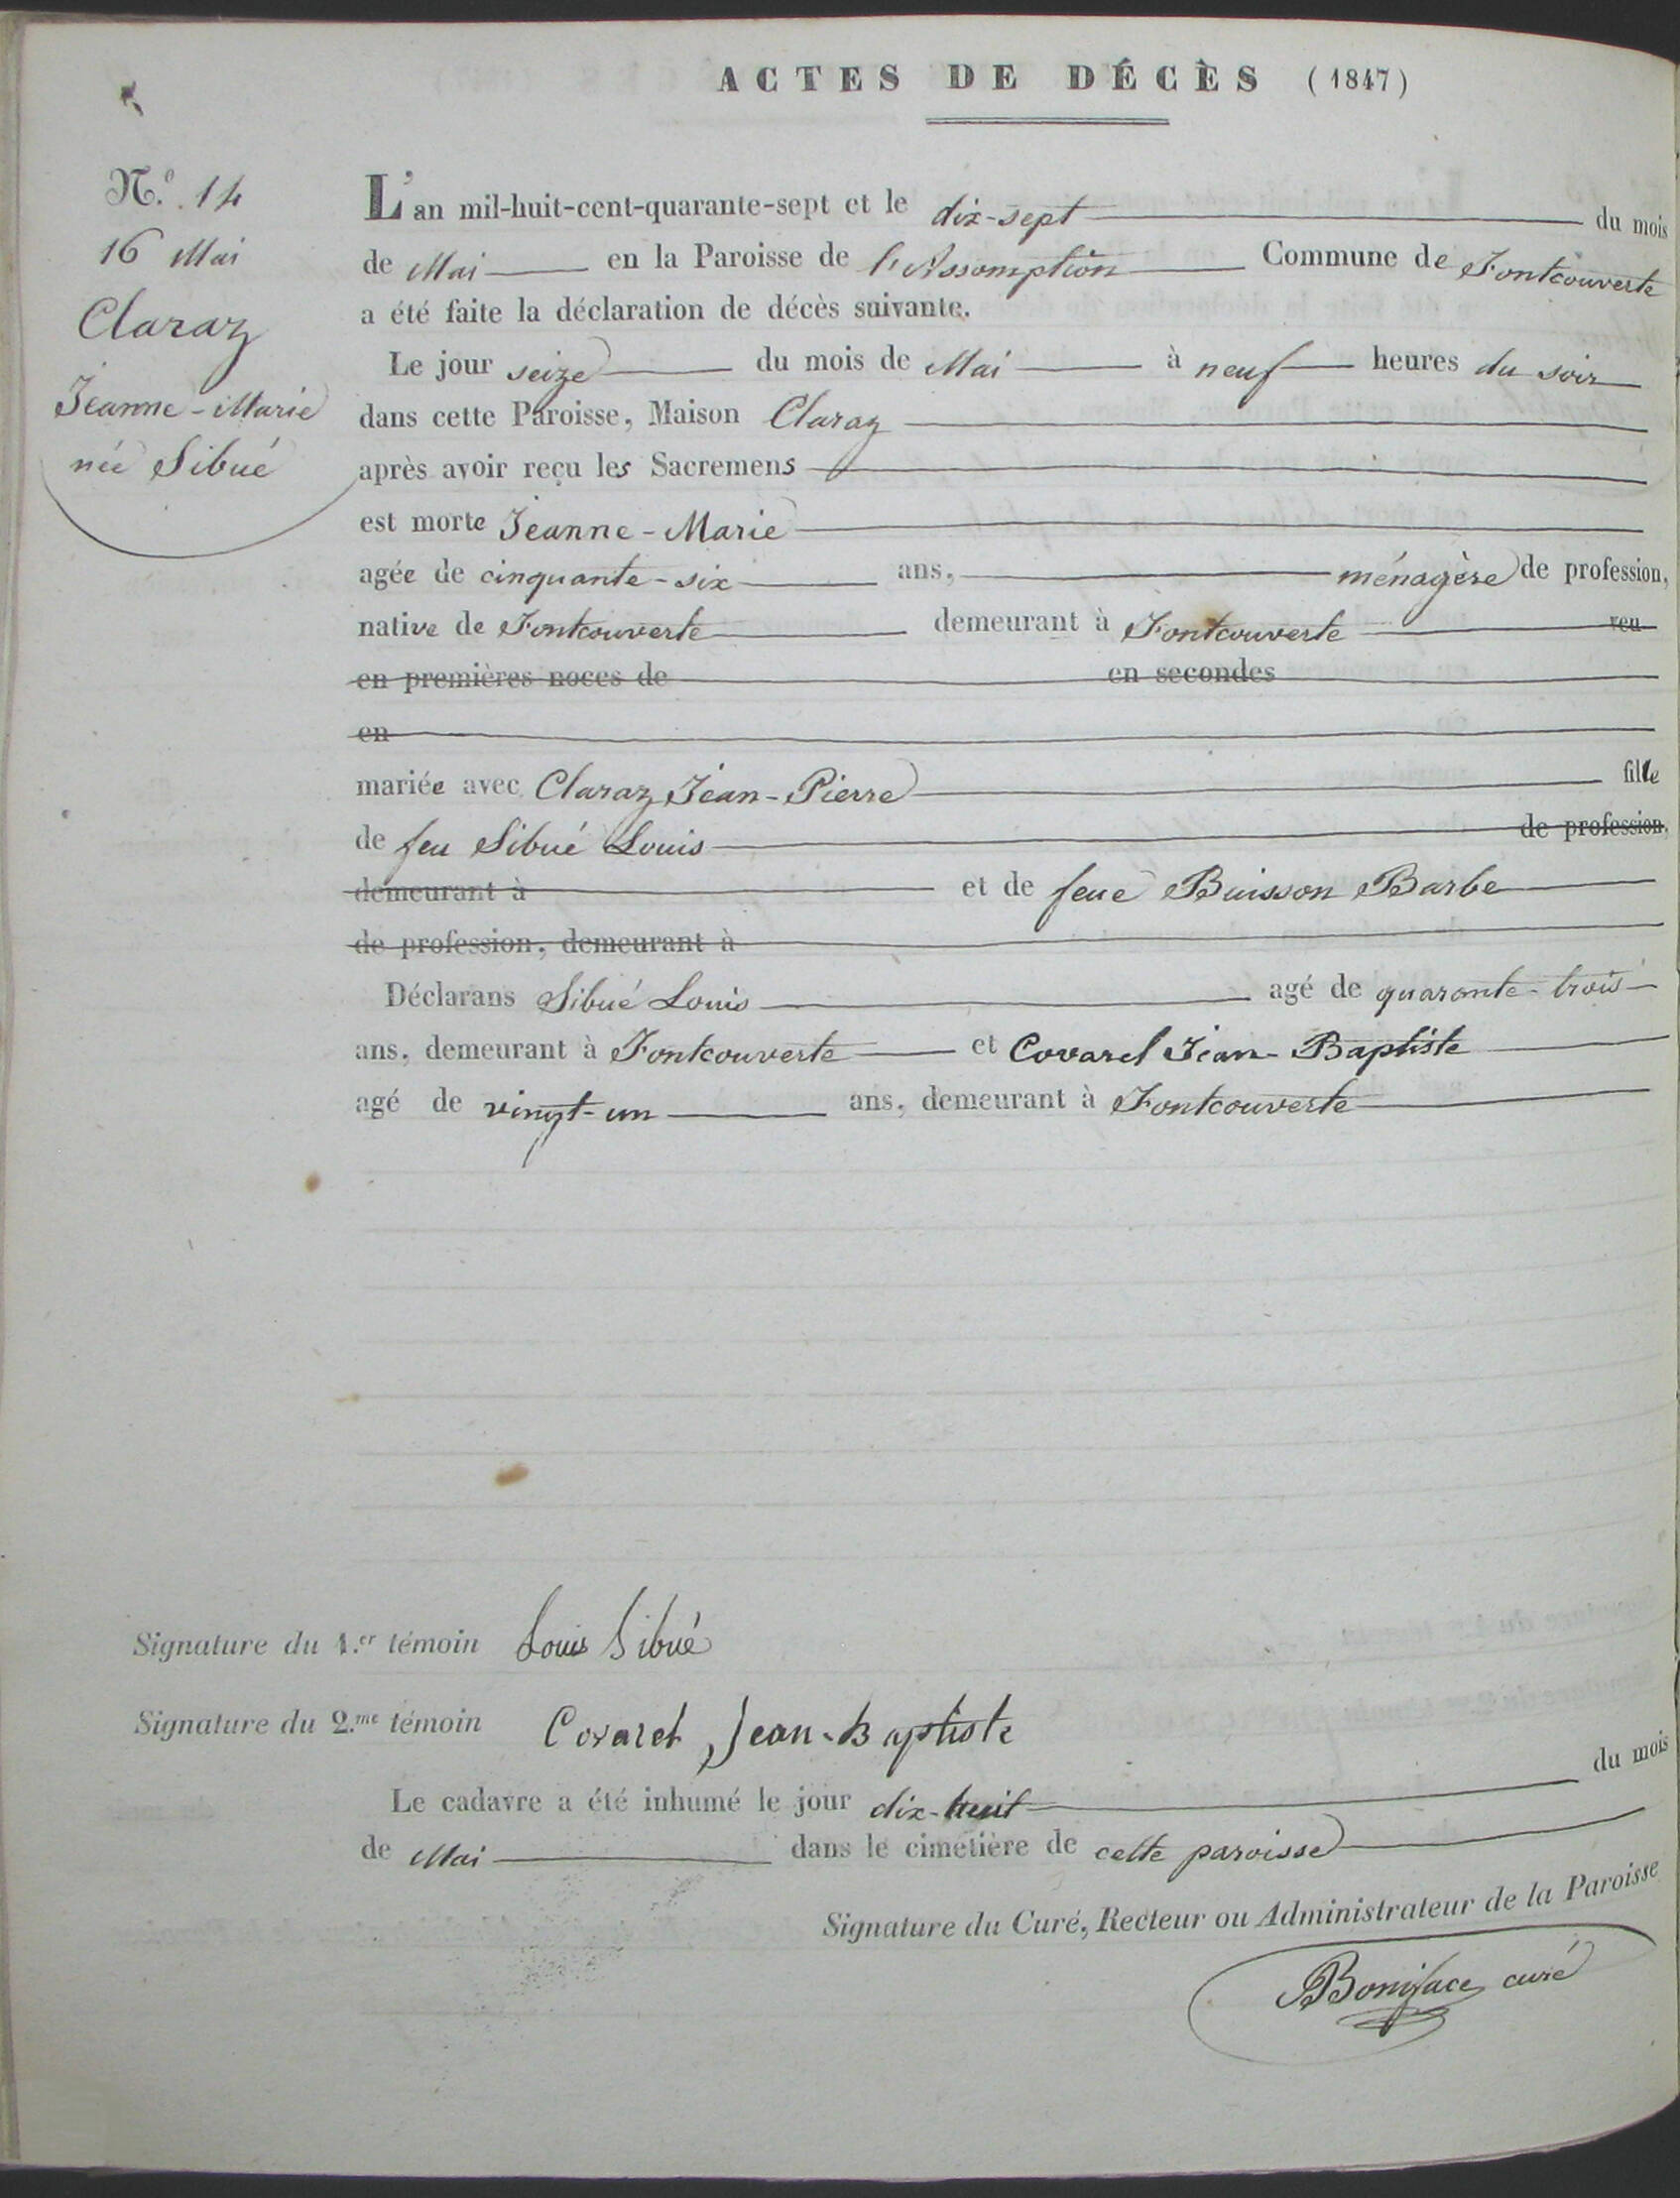 ACTES DE DÉCÈS (1847)
N.º 14
16 Mai
Claraz
Jeanne-Marie
née Sibué
L'an mil-huit-cent-quarante-sept et le dix-sept du mois
de Mai en la Paroisse de l'Assomption Commune de Fontcouverte
a été faite la déclaration de décès suivante.
Le jour seize du mois de Mai à neuf heures du soir
dans cette Paroisse, Maison Claraz
après avoir reçu les Sacremens
est morte Jeanne-Marie
agée de cinquante-six ans, ménagère de profession,
native de Fontcouverte demeurant à Fontcouverte veu
en premières noces de en secondes
en
mariée avec Claraz Jean-Pierre fille
de feu Sibué Louis de profession,
demeurant à et de feue Buisson Barbe
de profession, demeurant à
Déclarans Sibué Louis agé de quarante-trois
ans, demeurant à Fontcouverte et Covarel Jean-Baptiste
agé de vingt-un ans, demeurant à Fontcouverte
Signature du 1.er témoin Louis Sibué
Signature du 2.me témoin Covarel Jean-Baptiste
Le cadavre a été inhumé le jour dix-huit du mois
de Mai dans le cimetière de cette paroisse
Signature du Curé, Recteur ou Administrateur de la Paroisse
Boniface curé